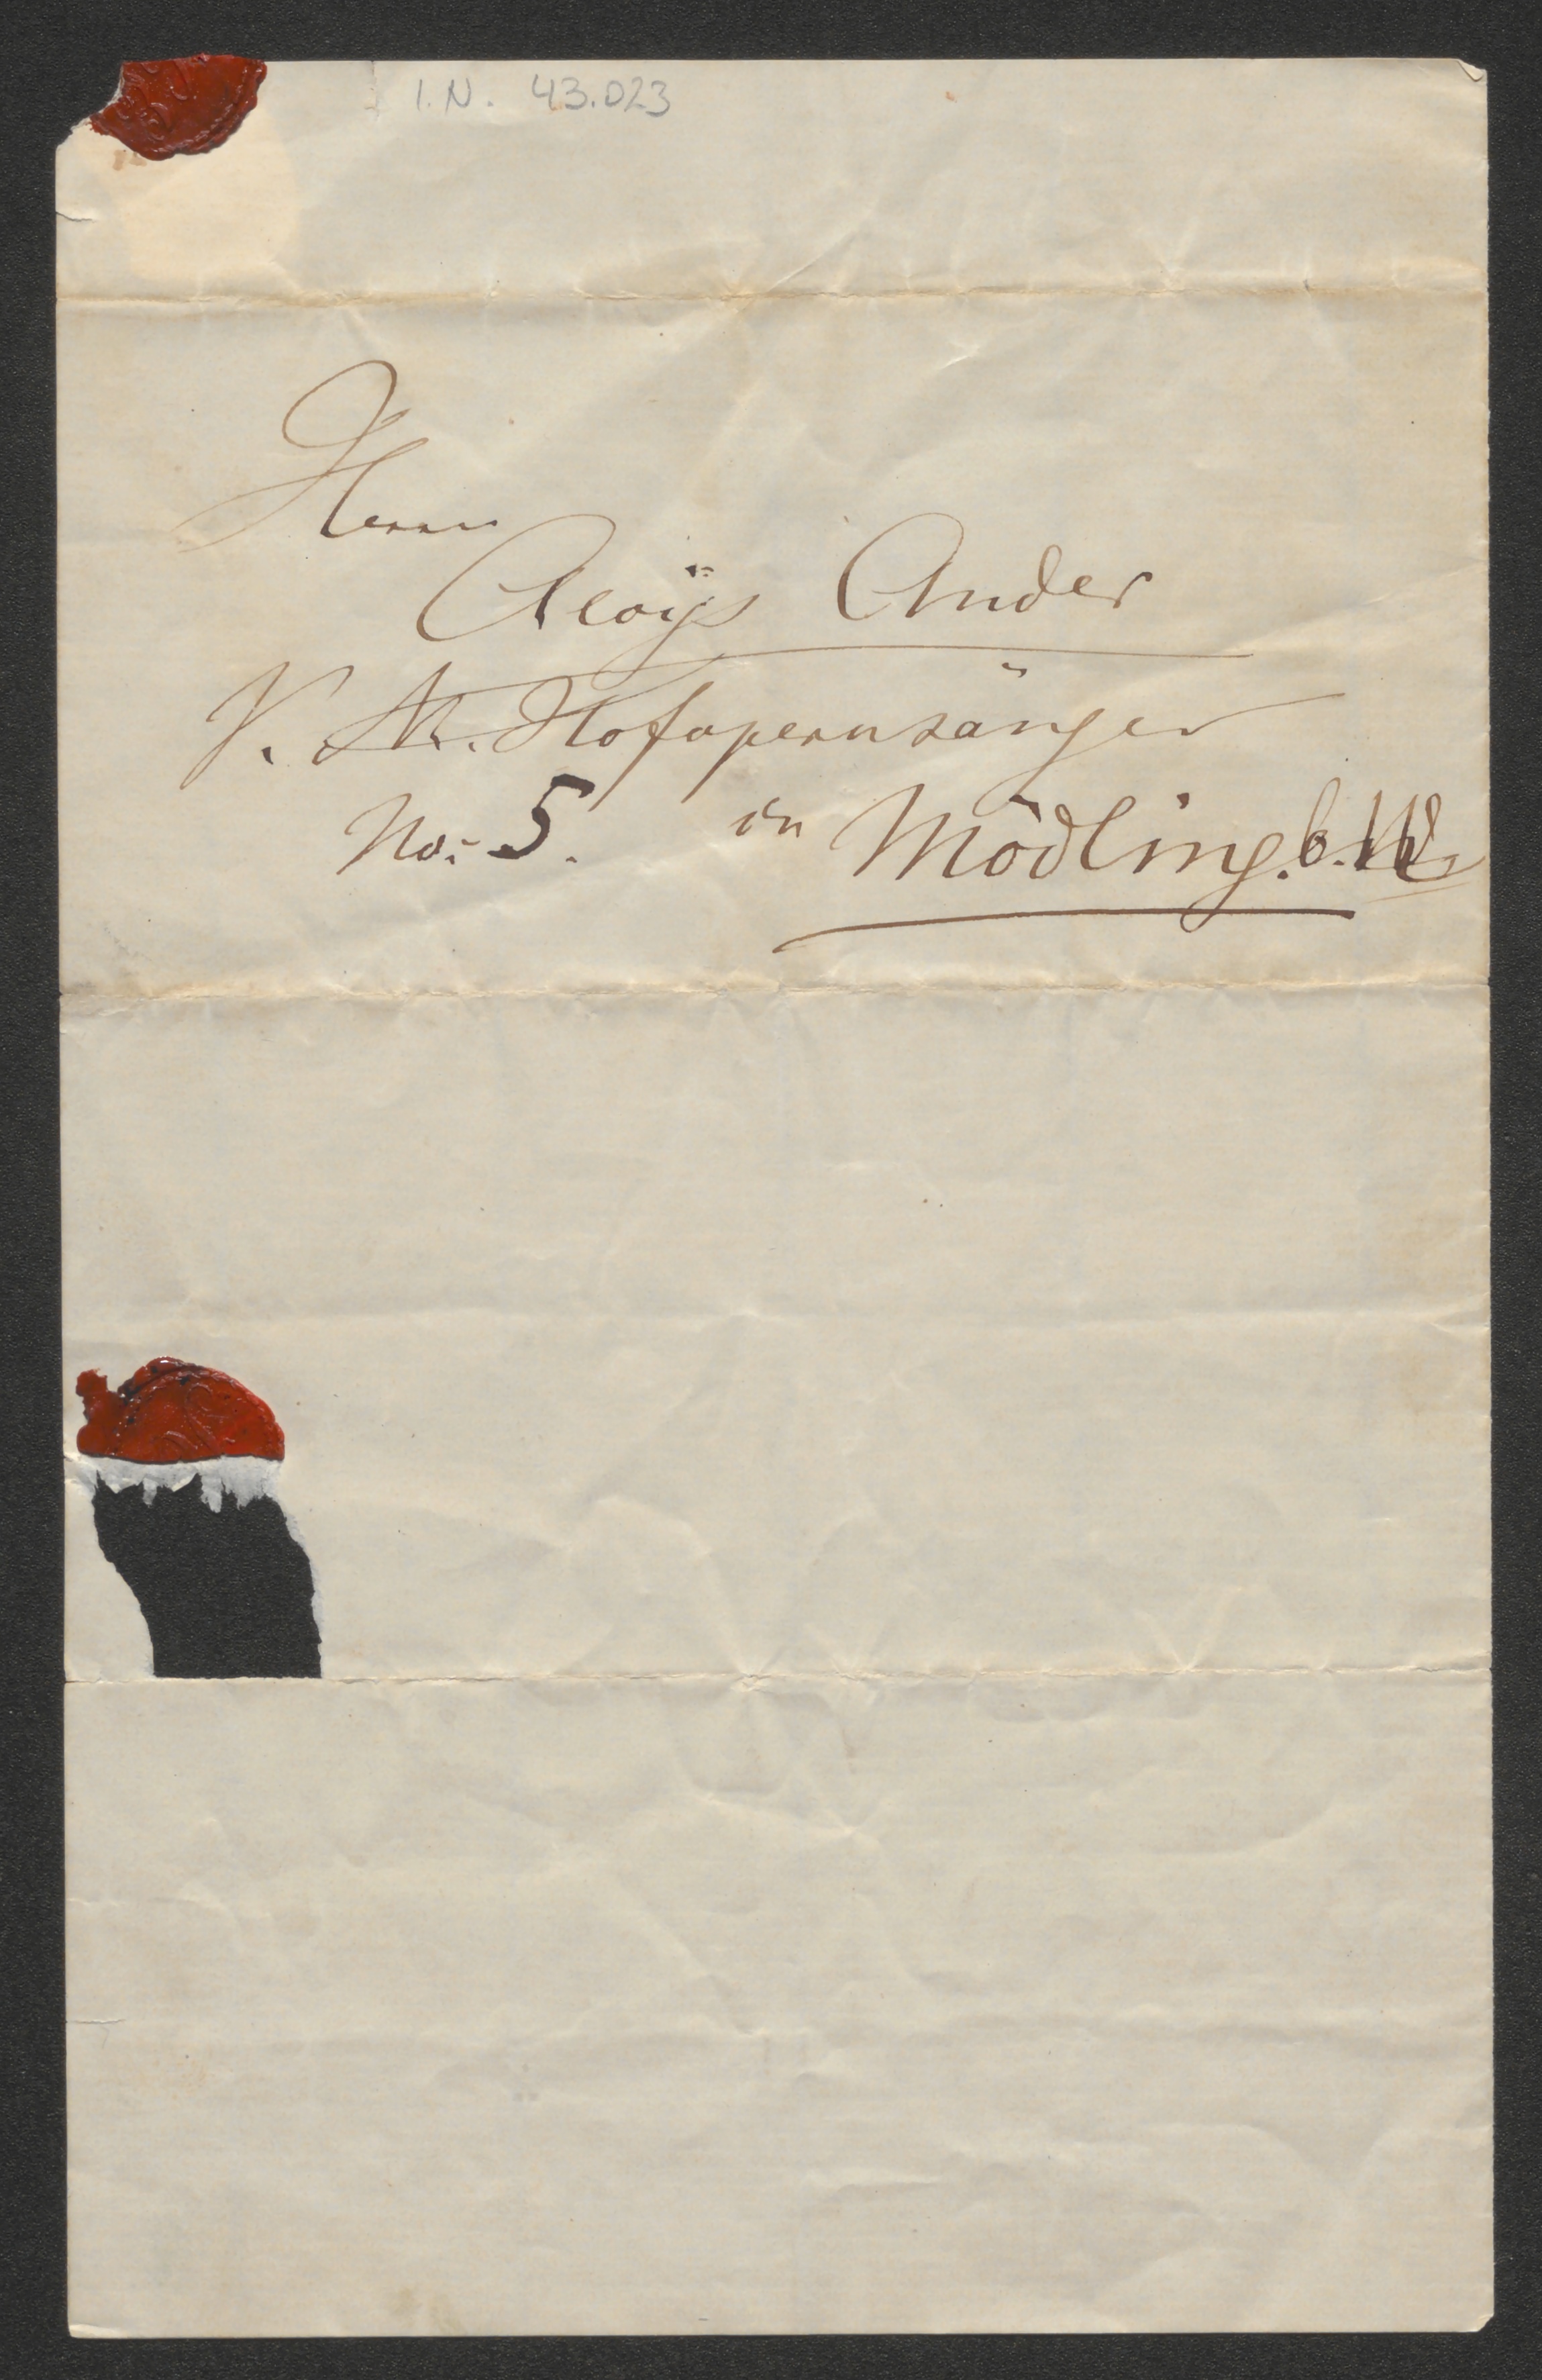 I.N. 43.023
Herrn
Aloÿs Ander
K. K. Hofopernsänger
No: 5. in Mödling. b. W